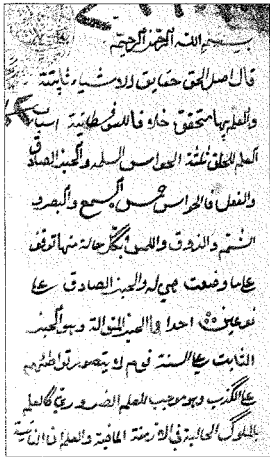 بسم الله الرحمن الرحيم
قال اهل الحق حقايق الاشياء ثابتة
والعلم بها متحقق خلافا للسوفسطائية اسباب
العلم للخلق ثلثة الحواس السليمة والخبر الصادق
والعقل فالحواس خمس السمع والبصر و
الشم والذوق واللمس وبكل حاسة منها توقف
على ما وضعت هي له والخبر الصادق على
نوعين احدهما الخبر المتواتر وهو الخبر
الثابت على السنة قوم لا يتصور تواطئهم
على الكذب وهو موجب للعلم الضروري كالعلم
بالملوك الخالية في الازمنة الماضية والبلدان النائية